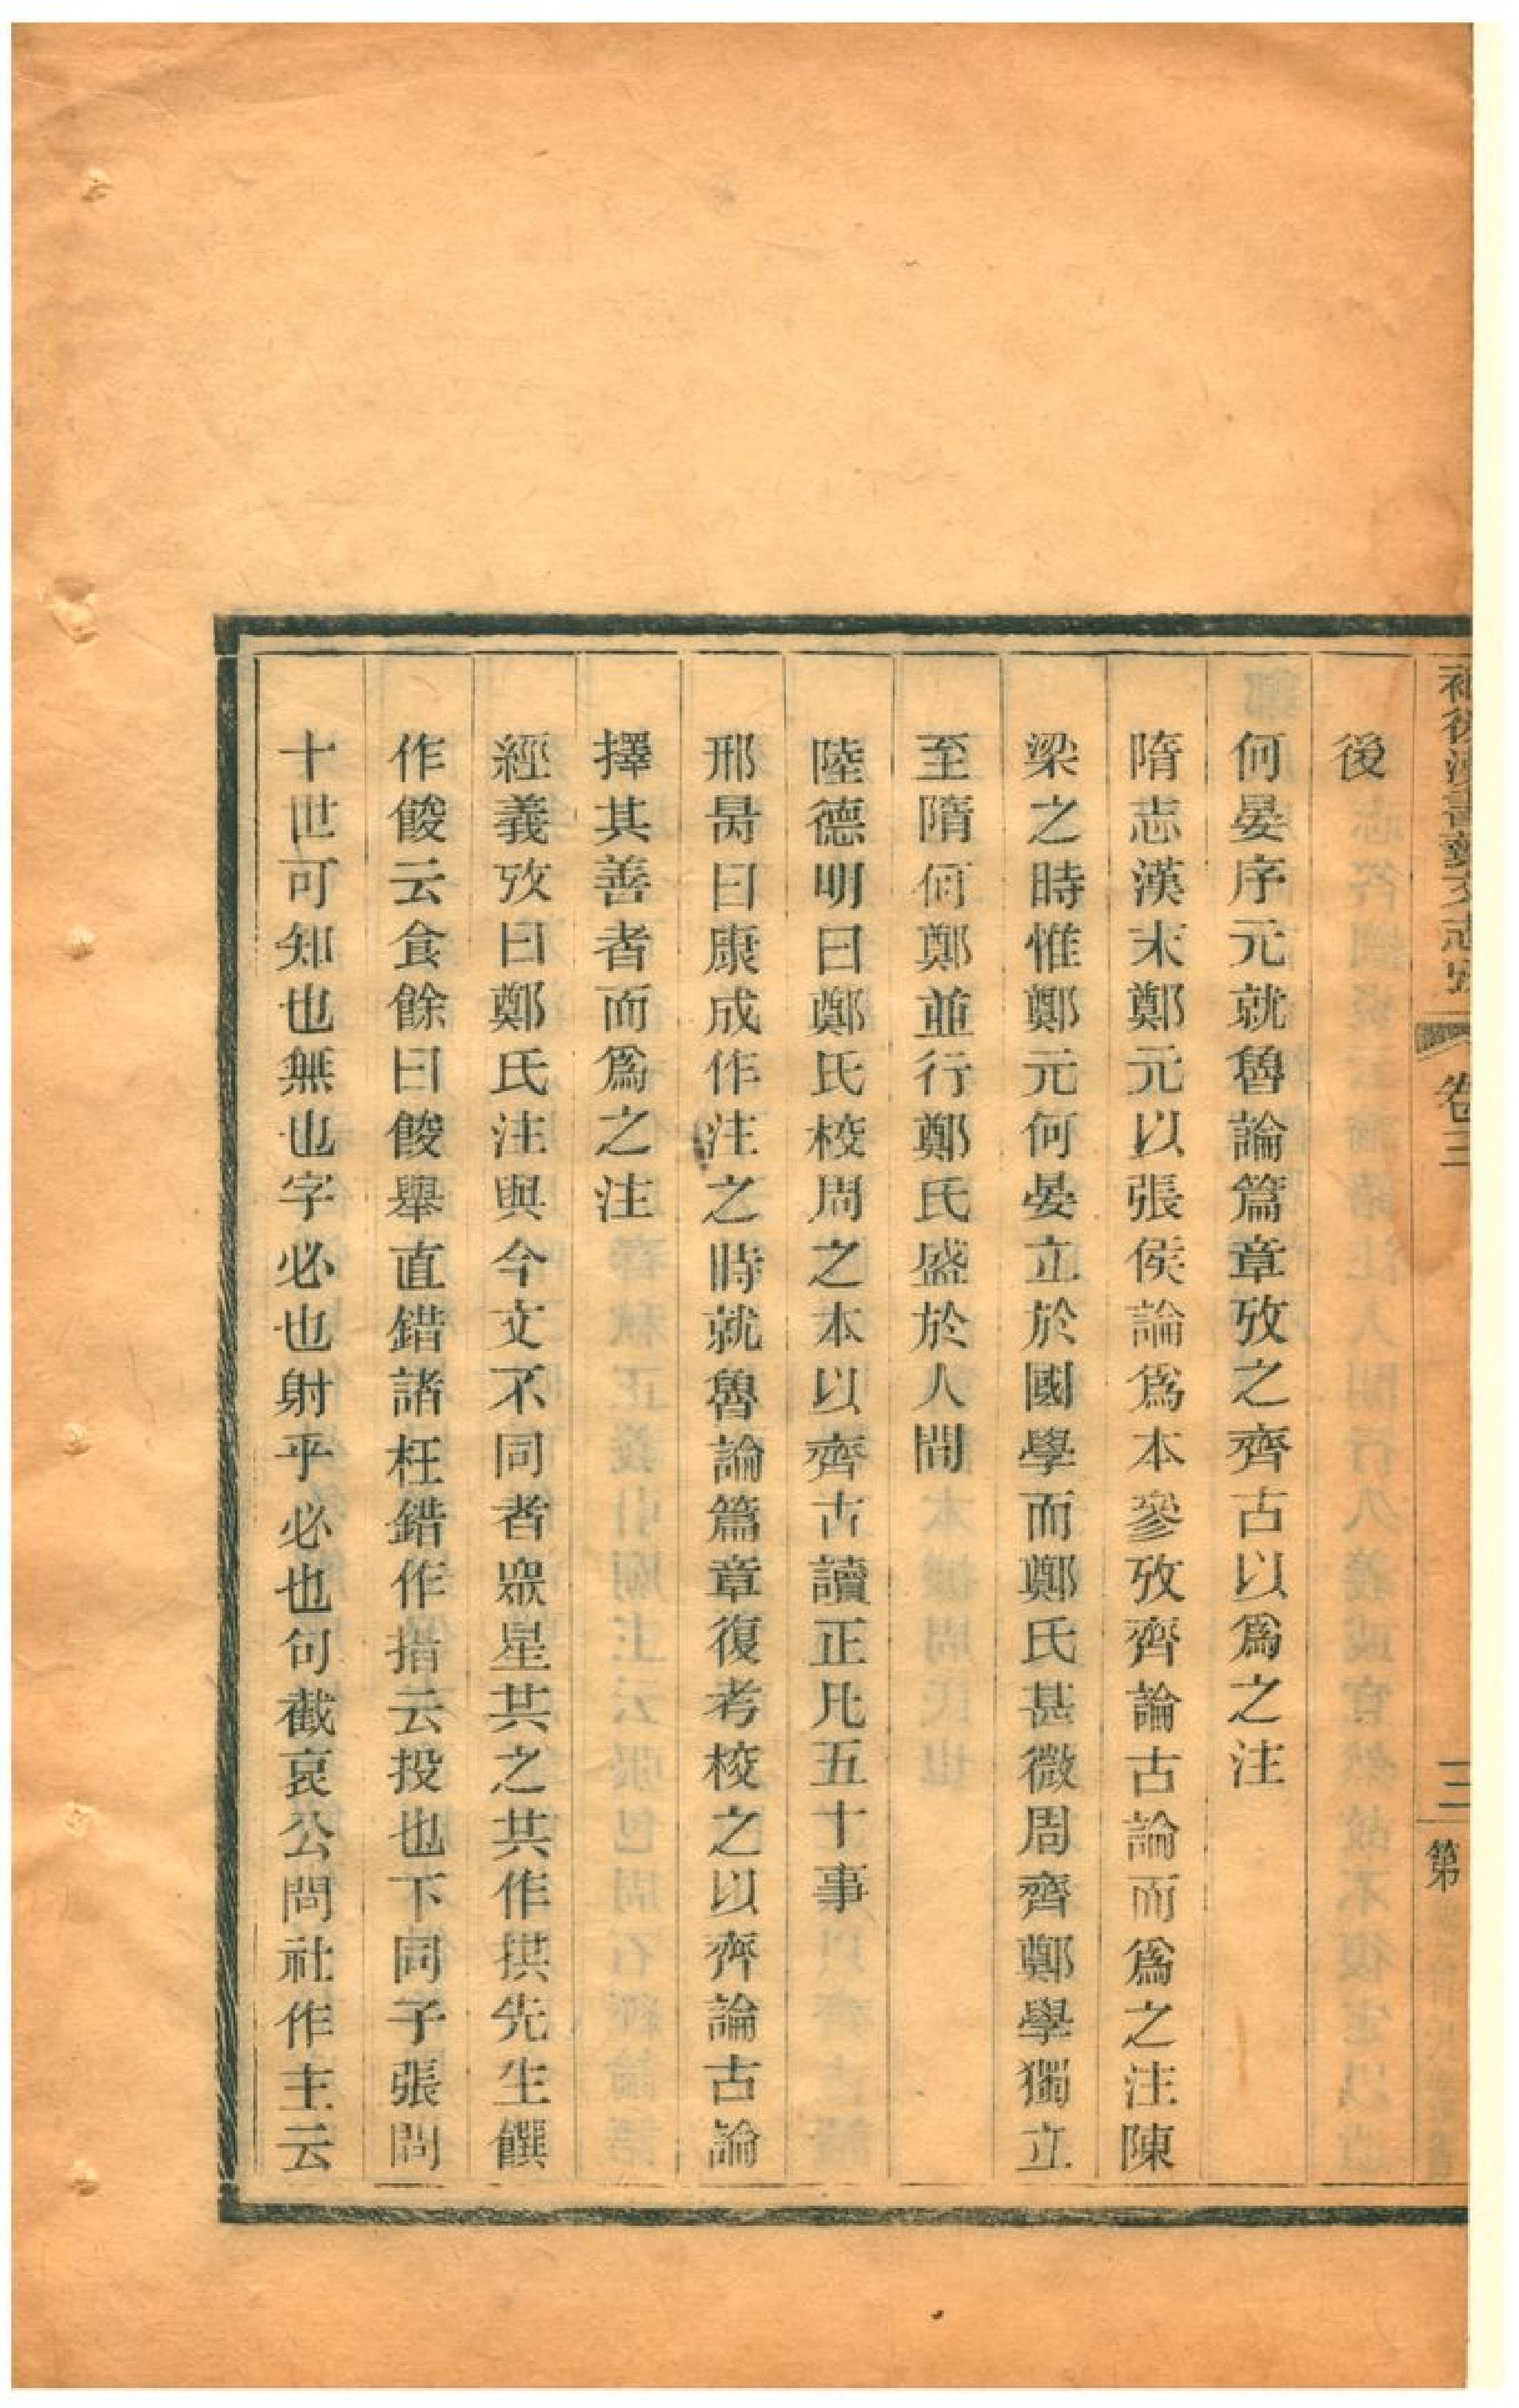 補後漢書藝文志攷 卷三 三 第
後
何晏序元就魯論篇章攷之齊古以爲之注
隋志漢末鄭元以張侯論爲本參攷齊論古論而爲之注陳
梁之時惟鄭元何晏立於國學而鄭氏甚微周齊鄭學獨立
至隋何鄭並行鄭氏盛於人間
陸德明曰鄭氏校周之本以齊古讀正凡五十事
邢昺曰康成作注之時就魯論篇章復考校之以齊論古論
擇其善者而爲之注
經義攷曰鄭氏注與今文不同者眾星共之共作拱先生饌
作餕云食餘曰餕舉直錯諸枉錯作措云投也下同子張問
十世可知也無也字必也射乎必也句截哀公問社作主云